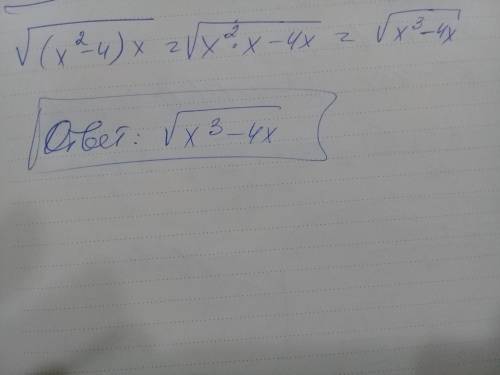 √(x²-4)x = √x²·x-4x = √x³-4x
Ответ: √x³-4x